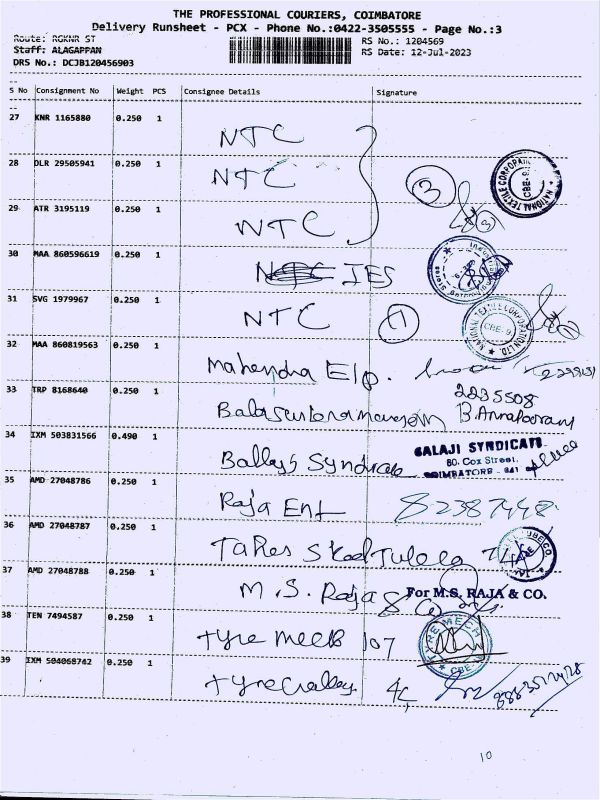 THE PROFESSIONAL COURIERS, COIMBATORE
Delivery Runsheet - PCX - Phone No.:0422-3505555 - Page No.:3
Route: RGKNR ST
RS No.: 1204569
Staff: ALAGAPPAN
RS Date: 12-Jul-2023
DRS No.: DCJB120456903
S No Consignment No Weight PCS Consignee Details Signature
27 KNR 1165880 0.250 1 NTC
28 DLR 29505941 0.250 1 NTC
3
NATIONAL TEXTILE CORPORATION
29 ATR 3195119 0.250 1 NTC
30 MAA 860596619 0.250 1 IES
31 SVG 1979967 0.250 1 NTC 1
NATIONAL TEXTILE CORPORATION LTD. CBE-9
32 MAA 860819563 0.250 1 Mahendra E/p.
33 TRP 8168640 0.250 1
2235508
34 IXM 503831566 0.490 1
BALAJI SYNDICATE
80. Cox Street,
COIMBATORE - 641
35 AMD 27048786 0.250 1 Raja Ent
36 AMD 27048787 0.250 1
37 AMD 27048788 0.250 1 M.S. Raja & Co
For M.S. RAJA & CO.
38 TEN 7494587 0.250 1 tyre 107
TYRE MECH CBE
39 IXM 504068742 0.250 1
10